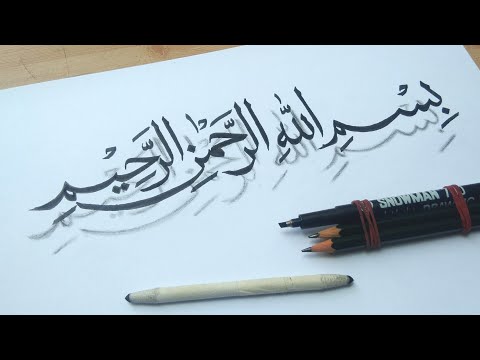 بِسْمِ اللّٰهِ الرَّحْمٰنِ الرَّحِيْمِ
SNOWMAN